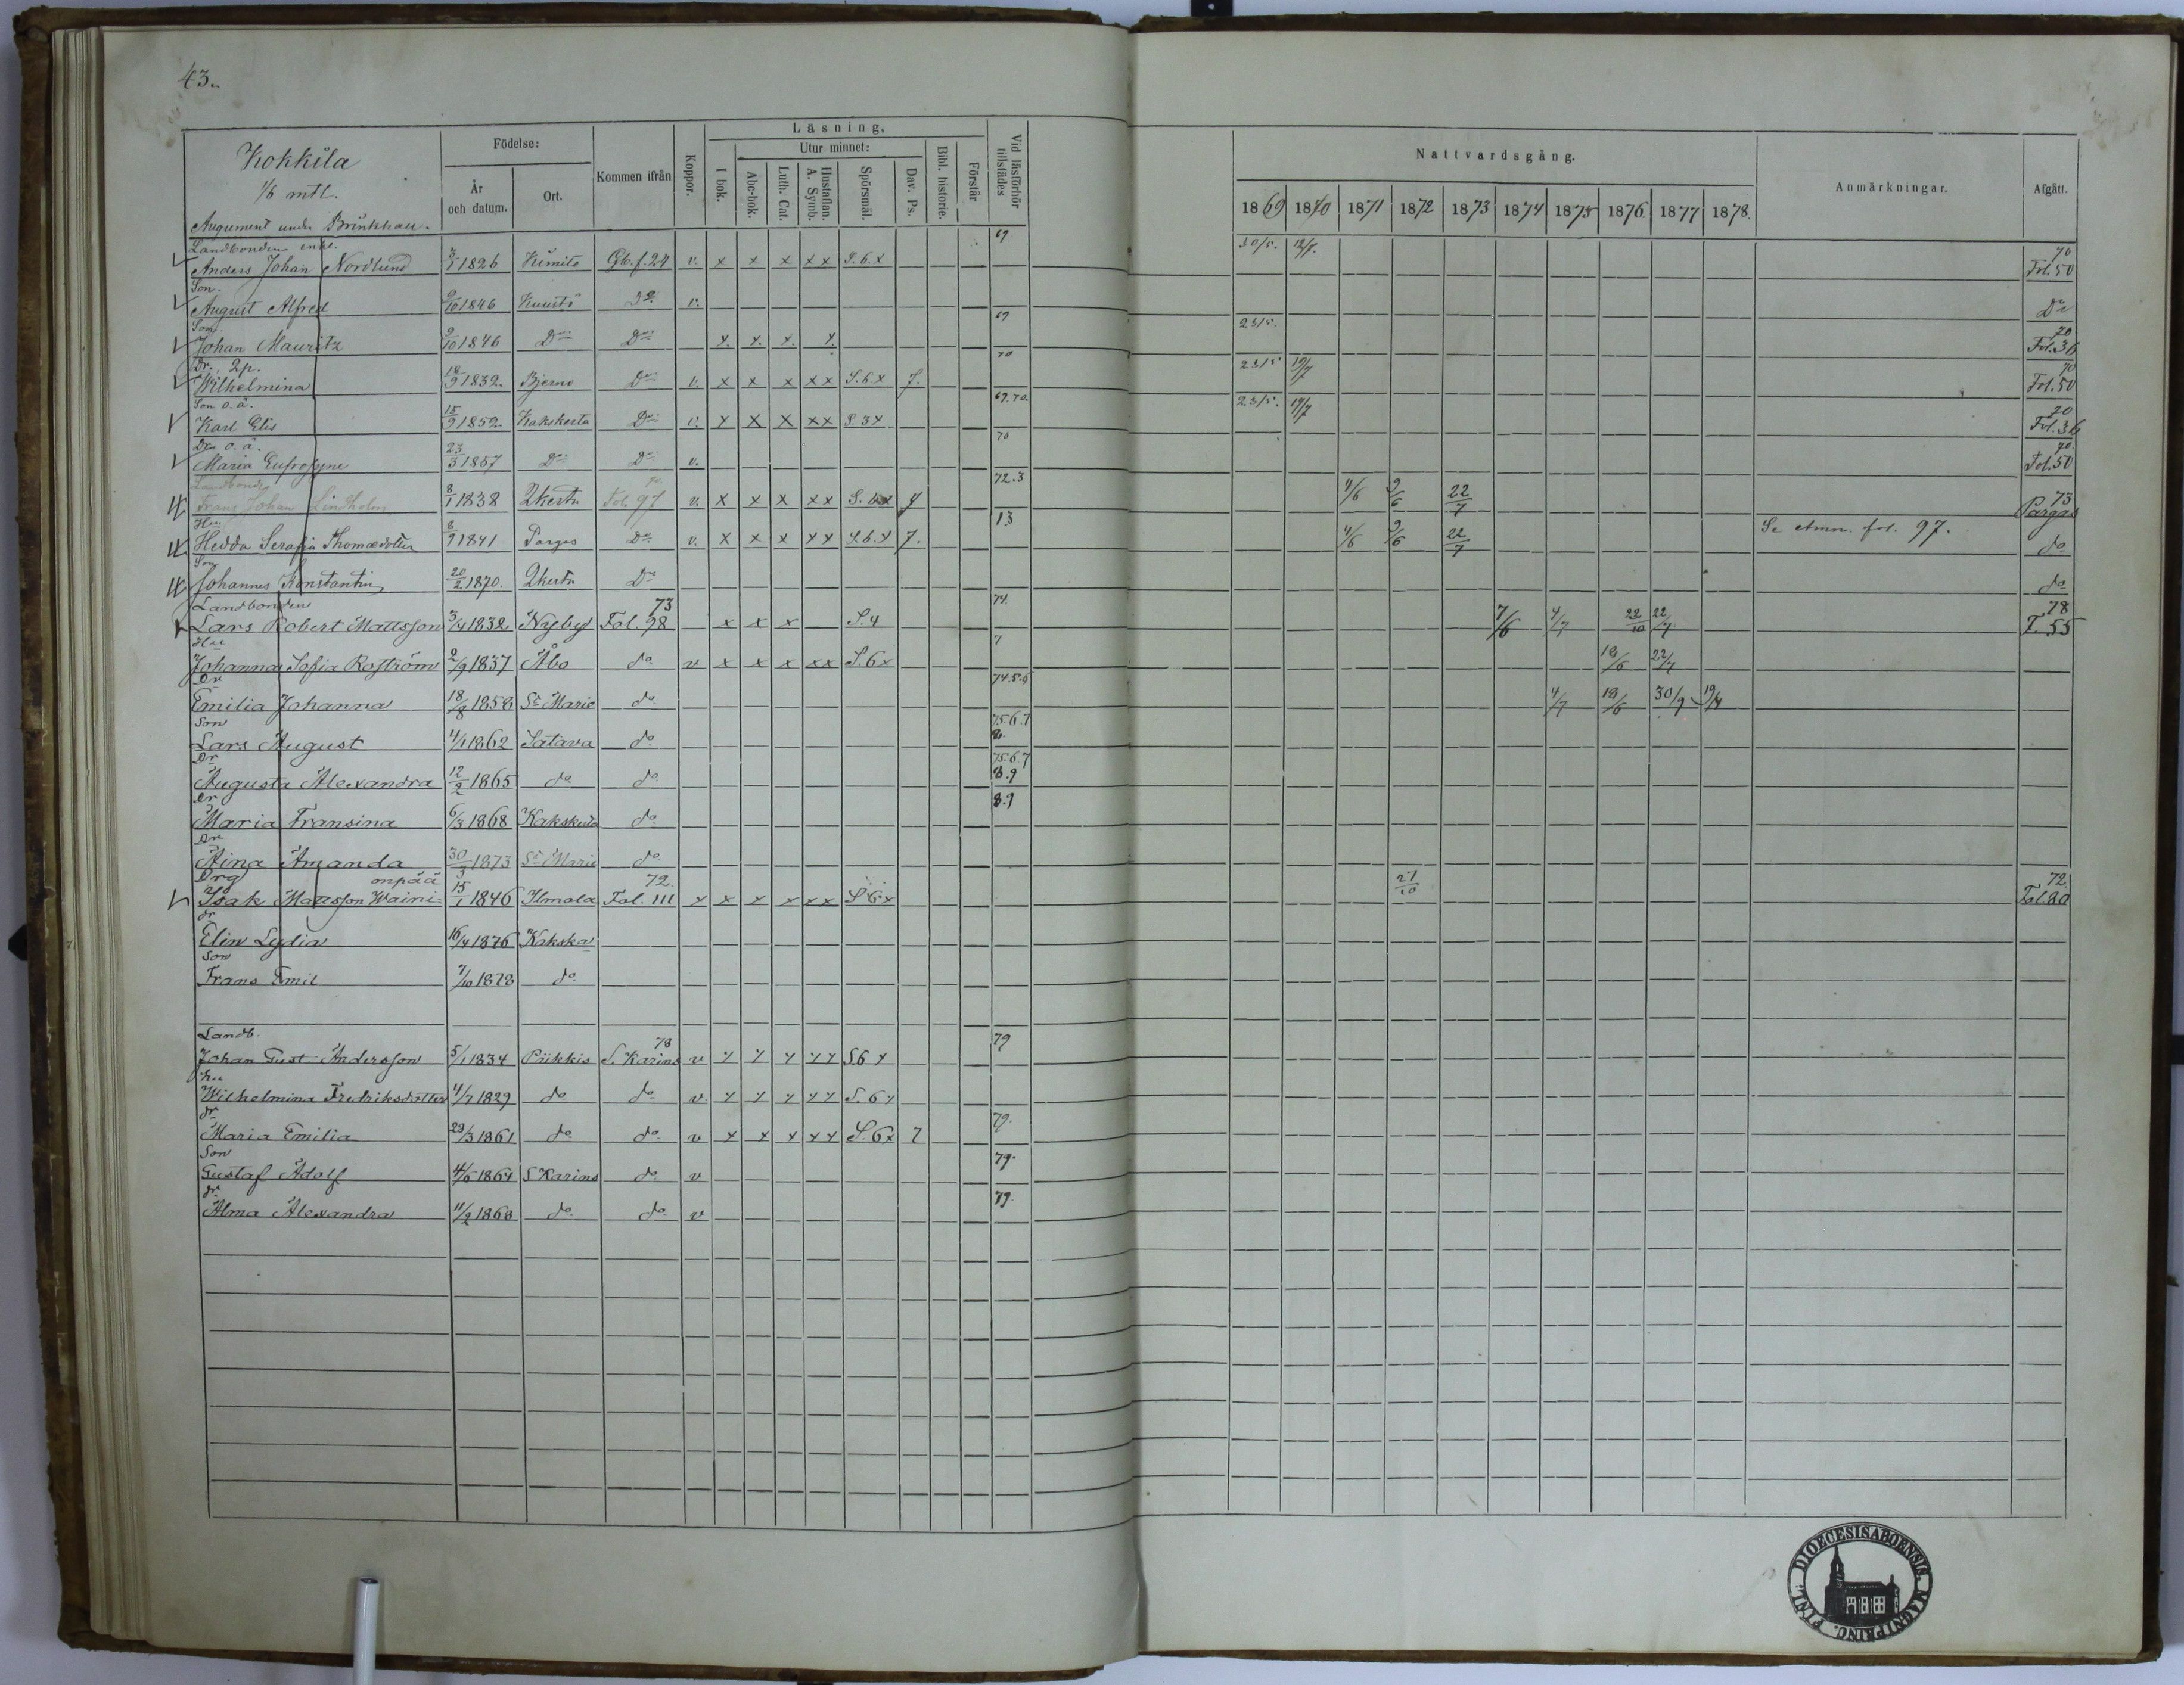 43.
Kokkila
1/6 mtl.
Augument under Brinkhall.
Födelse:
År och datum.
Ort.
Kommen ifrån
Koppor.
Läsning,
I bok.
Utur minnet:
Abc-bok.
Luth. Cat.
Hustaflan. A. Symb.
Spörsmål.
Dav. Ps.
Bibl. historie.
Förstår
Vid läsförhör tillstädes
Nattvardsgång.
1869 1870 1871 1872 1873 1874 1875 1876 1877 1878
Anmärkningar.
Afgått.
Landbonden enkl.
Anders Johan Nordlund 1826 Kimito Gb. f. 24 v. x x x x x S.6.x 69 30/5. 70 Fol. 50
Son.
August Alfred 9/10 1846 Kuusto Do v. Do
Son
Johan Mauritz 9/10 1846 Do Do x. x. x. x. 69 23/5. 70 Fol. 36
Dr. 2p.
Wilhelmina 18/9 1832. Bjerno Do v. x x x x x S.6 x 7. 70 23/5 19/7 70 Fol. 50
Son o.ä.
Karl Elis 15/9 1852. Kakskerta Do v. x x x x x S 3 x 69.70. 23/5. 19/7 70 Fol. 36
Dr o.ä.
Maria Eufrosyne 23/3 1857 Do Do v. 70 70 Fol. 50
Landbonde
Frans Johan Lindholm 8/1 1838 2kerta Fol. 97 v. x x x x x 7 72.3 4/6 9/6 22/7 73 Pargas
Hu
Hedda Serafia Thomædotter 8/9 1841 Pargas Do v. x x x x x S.6.x 7. 13 4/6 9/6 22/7 Se Anm. fol. 97. do
Son
Johannes Konstantin 20/2 1870. 2kerta Do do
Landbonden
Lars Robert Mattsson 3/4 1832 Nyby 73 Fol. 98 x x x S.4 74. 7/6 4/7 22/10 22/7 78 F. 55
Hu
Johanna Sofia Roström 2/9 1837 Åbo do v x x x xx S.6x 7 18/6 22/7
Dr
Emilia Johanna 18/8 1858 St Marie do 74.5.6 4/7 18/6 30/9 19/4
Son
Lars August 4/1 1862 Satava do 75.6.7 8.
Dr
Augusta Alexandra 12/2 1865 do do 75.6.7 8.9
Dr
Maria Fransina 6/3 1868 Kakskerta do 8.9
Dr
Aina Amanda 30/3 1873 St Marie do
Drg onpää
Isak Mattsson Waini- 15/1 1846 Ilmola 72. Fol. 111 x x x x x x S 6x 27/10 72. Fol. 20
dr
Elin Lydia 16/4 1876 Kakska
Son
Frans Emil 7/10 1878 do
Landb.
Johan Gust Andersson 5/1 1834 Piikkis 78 S. Karins v x x x x x S.6 x 79
hu
Wilhelmina Fredriksdotter 4/7 1829 do do v. x x x x x S. 6 x
dr
Maria Emilia 23/3 1861 do do v x x x x x S. 6x 7 79.
Son
Gustaf Adolf 4/6 1864 S Karins do v 79.
dr
Alma Alexandra 11/2 1868 do do v 79.
DIOECESIS ABOENSIS. MAGNI PRINC. FINL: